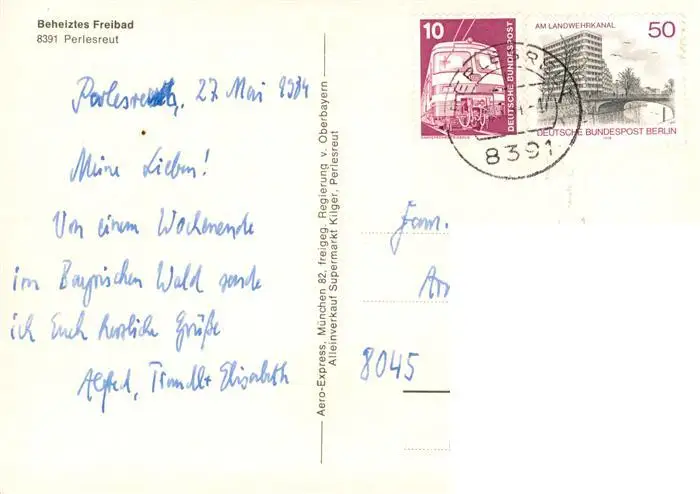 Beheiztes Freibad
8391 Perlesreut
Perlesreuth, 27 Mai 1984
Meine Lieben!
Von einem Wochenende
im Bayrischen Wald sende
ich Euch herzliche Grüße
Alfred, Traudl + Elisabeth
Aero-Express, München 82, freigeg. Regierung v. Oberbayern
Alleinverkauf Supermarkt Kilger, Perlesreut
10
DEUTSCHE BUNDESPOST
AM LANDWEHRKANAL
50
DEUTSCHE BUNDESPOST BERLIN
8391
Fam.
8045